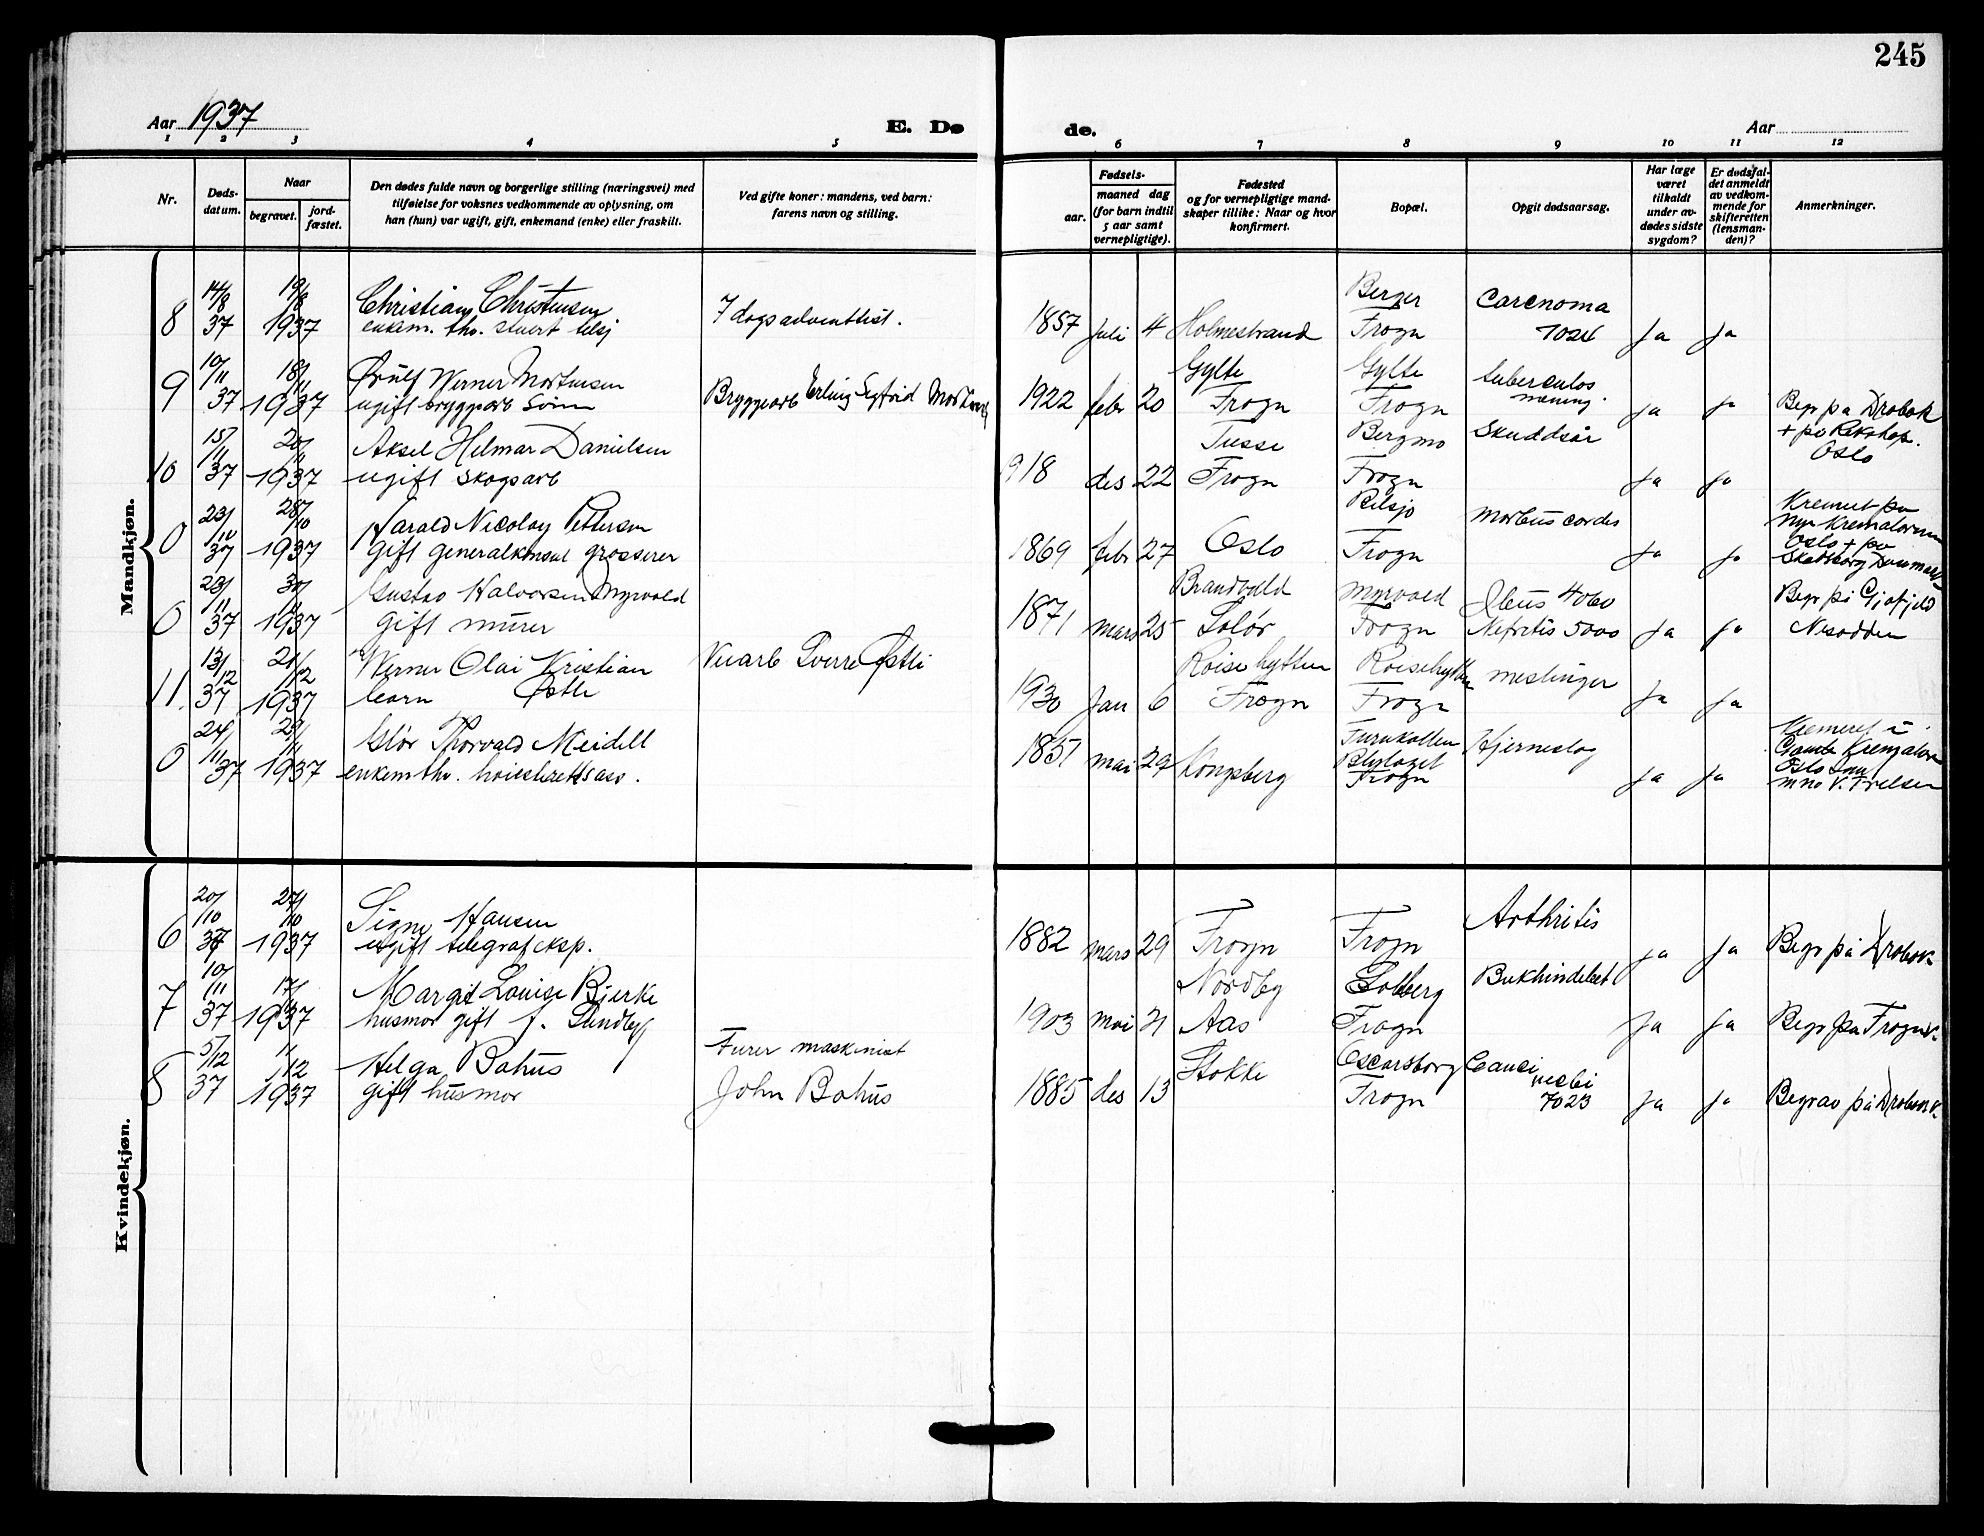 245
Aar 1937
E. Dø
de.
Aar
1 2 3 4 5 6 7 8 9 10 11 12
Nr.
Døds-
datum.
Naar
begravet.
jord-
fæstet.
Den dødes fulde navn og borgerlige stilling (næringsvei) med
tilføielse for voksnes vedkommende av oplysning, om
han (hun) var ugift, gift, enkemand (enke) eller fraskilt.
Ved gifte koner: mandens, ved barn:
farens navn og stilling.
Fødsels-
aar.
maaned dag
(for barn indtil
5 aar samt
vernepligtige).
Fødested
og for vernepligtige mand-
skaper tillike: Naar og hvor
konfirmert.
Bopæl.
Opgit dødsaarsag.
Har læge
været
tilkaldt
under av-
dødes sidste
sygdom?
Er dødsfal-
det anmeldt
av vedkom-
mende for
skifteretten
(lensman-
den)?
Anmerkninger.
Mandkjøn.
14/8 19/8 Christian Christensen Berger Carcnoma
8 37 1937 enkem. fhv. 7 dags adventist. 1857 juli 4 Holmestrand Frogn 7024 Ja Ja
10/11 18/11 Ørulf Werner Mortensen Gylte Gylte tuberculos
9 37 1937 ugift bryggarb sønn Bryggearb Erling Sigfrid 1922 febr 20 Frogn Frogn mening. Ja Ja Begr på Drøbak
15/11 20/11 Aksel Helmar Danielsen Tusse Bergmo Skuddsår
10 37 1937 ugift skogsarb 918 des 22 Frogn Frogn Ja Ja Oslo
23/10 28/10 Harald Nicolay Pettersen Morbus cordis Kremert på
0 37 1937 gift generalkonsul grosserer 1869 febr 27 Oslo Frogn Ja Ja Oslo + på
23/11 30/11 Gustav Halvorsen Myrvold Brandvold Myrvold Ileus 4060 Begr på Gjøfjeld
0 37 1937 gift murer 1871 mars 25 Solør Frogn Nefritis 5000 Ja Ja Nesodden
13/12 21/12 Werner Olai Kristian Veiarb Sverre Østli Roisehytten Roisehytten meslinger
11 37 1937 barn Østli 1930 Jan 6 Frogn Frogn Ja Ja
24/11 29/11 Glør Thorvald Meidell Furukollen Hjerneslag Kremeret i
0 37 1937 enkem fhv. høiesterettsass. 1851 mai 29 Kongsberg Frogn Ja Ja Oslo
Kvindekjøn.
20/10 27/10 Signe Hansen Arthritis
6 37 1937 ugift telegrafeksp. 1882 mars 29 Frogn Frogn Ja Ja Begr på Drøbak
10/11 17/11 Margit Louise Bjerke Nordby Solberg Bukhindebet
7 37 1937 husmor gift f. Sundby 1903 mai 21 Aas Frogn Ja Ja Begr på Frogn k.
5/12 11/12 Helga Bahus Furer maskinist Stokke Oscarsborg Canc
8 37 1937 gift husmor John Bahus 1885 des 13 Frogn 7023 Ja Ja Begrav på Drøbak k.